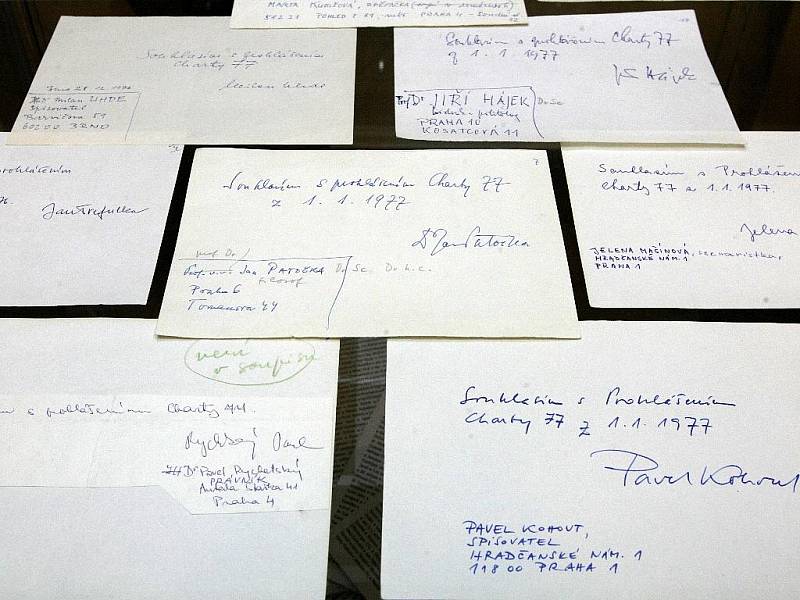 MARTA KUBIŠOVÁ,
Souhlasím s prohlášením
Charty 77
Brno 28. 12. 1976
JUDr Milan UHDE
spisovatel
Barvičova 59
602 00 BRNO
Souhlasím s prohlášením Charty 77
z 1. 1. 1977
Prof Dr JIŘÍ HÁJEK DrSc
PRAHA 10
KOSATCOVÁ 11
prohlášením
76.
Jan Trefulka
7
Souhlasím s prohlášením Charty 77
z 1. 1. 1977
Dr Jan Patočka
prof. Dr.
Jan PATOČKA DrSc. Dr. h. c.
filosof
Praha 6
Tomanova 44
Souhlasím s Prohlášen
Charty 77 z 1.1.1977.
Jelena
JELENA MAŠÍNOVÁ, scenaristka,
HRADČANSKÉ NÁM. 1
PRAHA 1
není
v soupisu
m s prohlášením Charty 77.
Rychetský Pavel
JUDr Pavel Rychetský
PRÁVNÍK
Praha 4
Souhlasím s Prohlášením
Charty 77 z 1.1.1977
Pavel Kohout
PAVEL KOHOUT,
SPISOVATEL
HRADČANSKÉ NÁM. 1
118 00 PRAHA 1